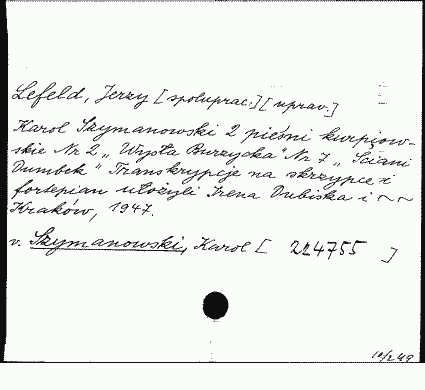 Lefeld, Jerzy [spoluprac.] [uprav.]
Karol Szymanowski 2 pieśni kurpiow-
skie Nr 2 „Wysła Burzycka" Nr 7 „Ściani
Dumbek" Transkrypcje na skrzypce i
fortepian ułożyli Irena Dubiska i ~~
Kraków, 1947.
v. Szymanowski, Karol [ 224755 ]
12/2 49